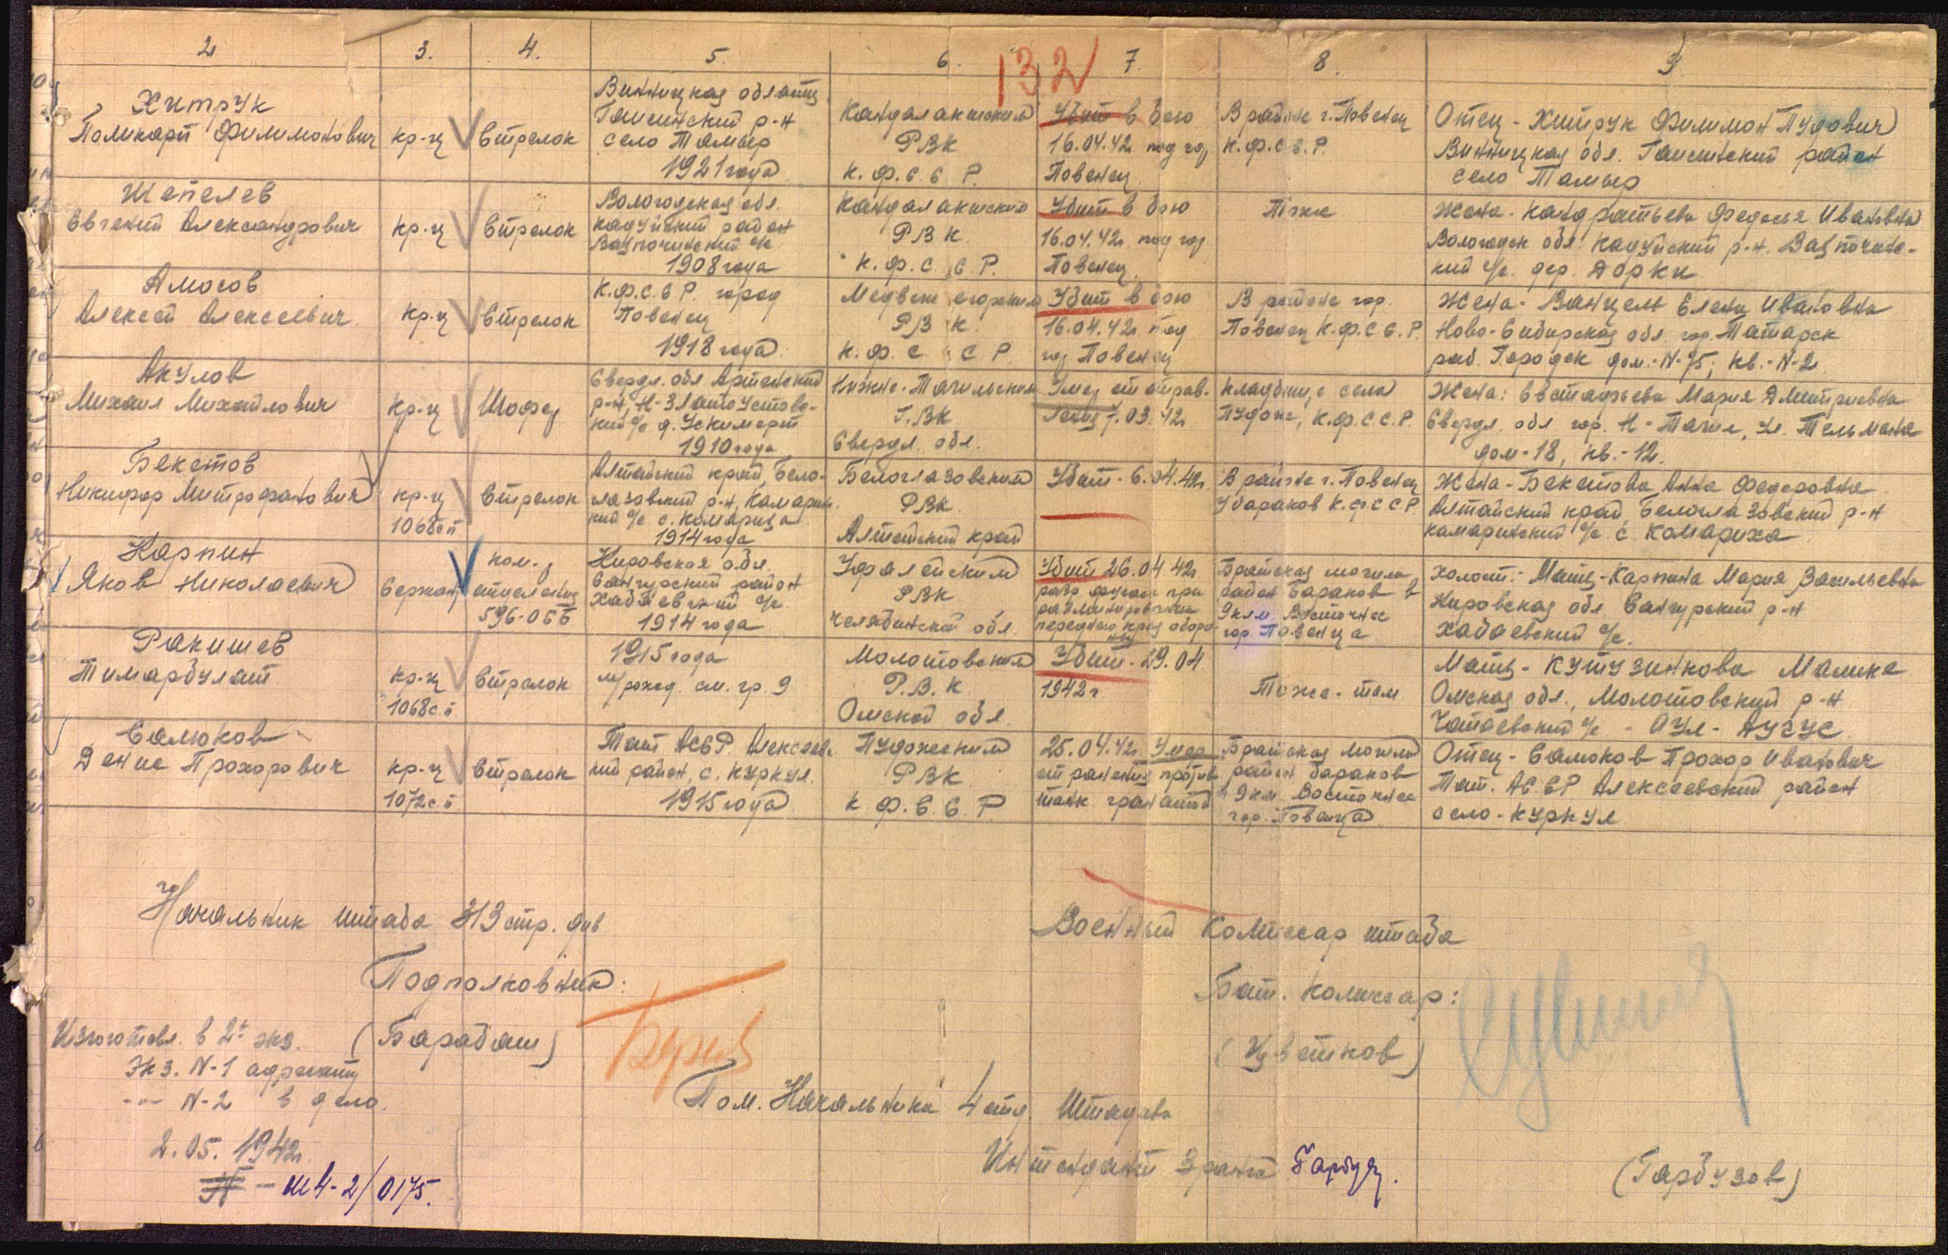 2 3. 4. 5. 6. 7. 8. 9.
132
Хитрук
Поликарп Филимонович
кр-ц
Стрелок
Винницкая область
Гайсинский р-н
село Тамыр
1921 года
Кандалакшским
РВК
К.Ф.С.С.Р.
Убит в бою
16.04.42 под гор
Повенец
В районе г. Повенец
К.Ф.С.С.Р.
Отец - Хитрук Филимон Пудович
Винницкая обл. Гайсинский район
село Тамыр
Шепелев
Евгений Александрович
кр-ц
Стрелок
Вологодская обл.
Кадуйский район
с/с
1908 года
Кандалакшским
РВК
К.Ф.С.С.Р.
Убит в бою
16.04.42г под гор
Повенец
Тоже
Жена - Кондратьева Федосья Ивановна
Вологодск обл. Кадуйский р-н.
кий с/с. дер. Дорки
Амосов
Алексей Алексеевич
кр-ц
Стрелок
К.Ф.С.С.Р. город
Повенец
1918 года
Медвежьегорским
РВК
К.Ф.С.С.Р.
Убит в бою
16.04.42г под
гор Повенец
В районе гор.
Повенец К.Ф.С.С.Р.
Жена - Ванцель Елена Ивановна
Ново-Сибирская обл. гор. Татарск
раб. Городок дом.-N-75, кв.-N-2
Акулов
Михаил Михайлович
кр-ц
Шофер
Свердл. обл Артинский
р-н,
кий с/с д. Ускимерт
1910 года
Нижне-Тагильским
Г.ВК
Свердл. обл.
Умер от отрав-
ления 7.03.42г.
Кладбище села
Пудож, К.Ф.С.С.Р.
Жена: Евстафьева Мария Дмитриевна
Свердл. обл гор. Н-Тагил, ул. Тельмана
дом-18, кв.-12.
Бекетов
Никифор Митрофанович
кр-ц
1068сп
Стрелок
Алтайский край, Бело-
глазовский р-н, Камарин-
кий с/с с. Комариха
1914 года
Белоглазовским
РВК
Алтайский край
Убит - 6.04.42г
В районе г. Повенец
У бараков К.Ф.С.С.Р.
Жена - Бекетова Анна Федоровна
Алтайский край Белоглазовский р-н
Камаринский с/с с. Комариха
Карпин
Яков Николаевич
Сержант
ком.
отделения
596-ОСБ
Кировская обл.
Санчурский район
Хабаевский с/с
1914 года
Уфалейским
РВК
Челябинской обл.
Убит 26.04.42г
разр. фугаса при
разминировании
переднего края оборо-
ны
Братская могила
район бараков в
9 клм. Восточнее
гор. Повенца
Холост: - Мать-Карпина Мария Васильевна
Кировская обл Санчурский р-н
Хабаевский с/с.
Ракишев
Тимарбулат
кр-ц
1068с.п
Стрелок
1915 года
м/рожд. см. гр. 9
Молотовским
Р.В.К.
Омской обл.
Убит - 29.04
1942г
Тоже - там
Мать - Кутузинкова Малика
Омская обл., Молотовский р-н
Чапаевский с/с - Аул - Аусус
Салюков
Денис Прохорович
кр-ц
1072с.п
Стрелок
Тат АССР. Алексеев-
кий район, с. Куркул.
1915 года
Пудожским
РВК
К.Ф.С.С.Р
25.04.42г. Умер
от ранения против
танк. гранатой
Братская могила
район бараков
9 км. Восточнее
гор. Повенца
Отец - Салюков Прохор Иванович
Тат. АССР Алексеевский район
село - Куркул
Начальник штаба 313 стр. див
Подполковник:
(Барабаш)
Военный Комиссар штаба
Бат. Комиссар:
(Цветков)
Изготовл. в 2х экз.
Экз. N-1 адресату
-"- N-2 в дело.
2.05.1942г.
N - ш4-2/0175.
Пом. Начальника 4 отд. Штадива
Интендант 3 ранга Гарбуз.
(Гарбузов)